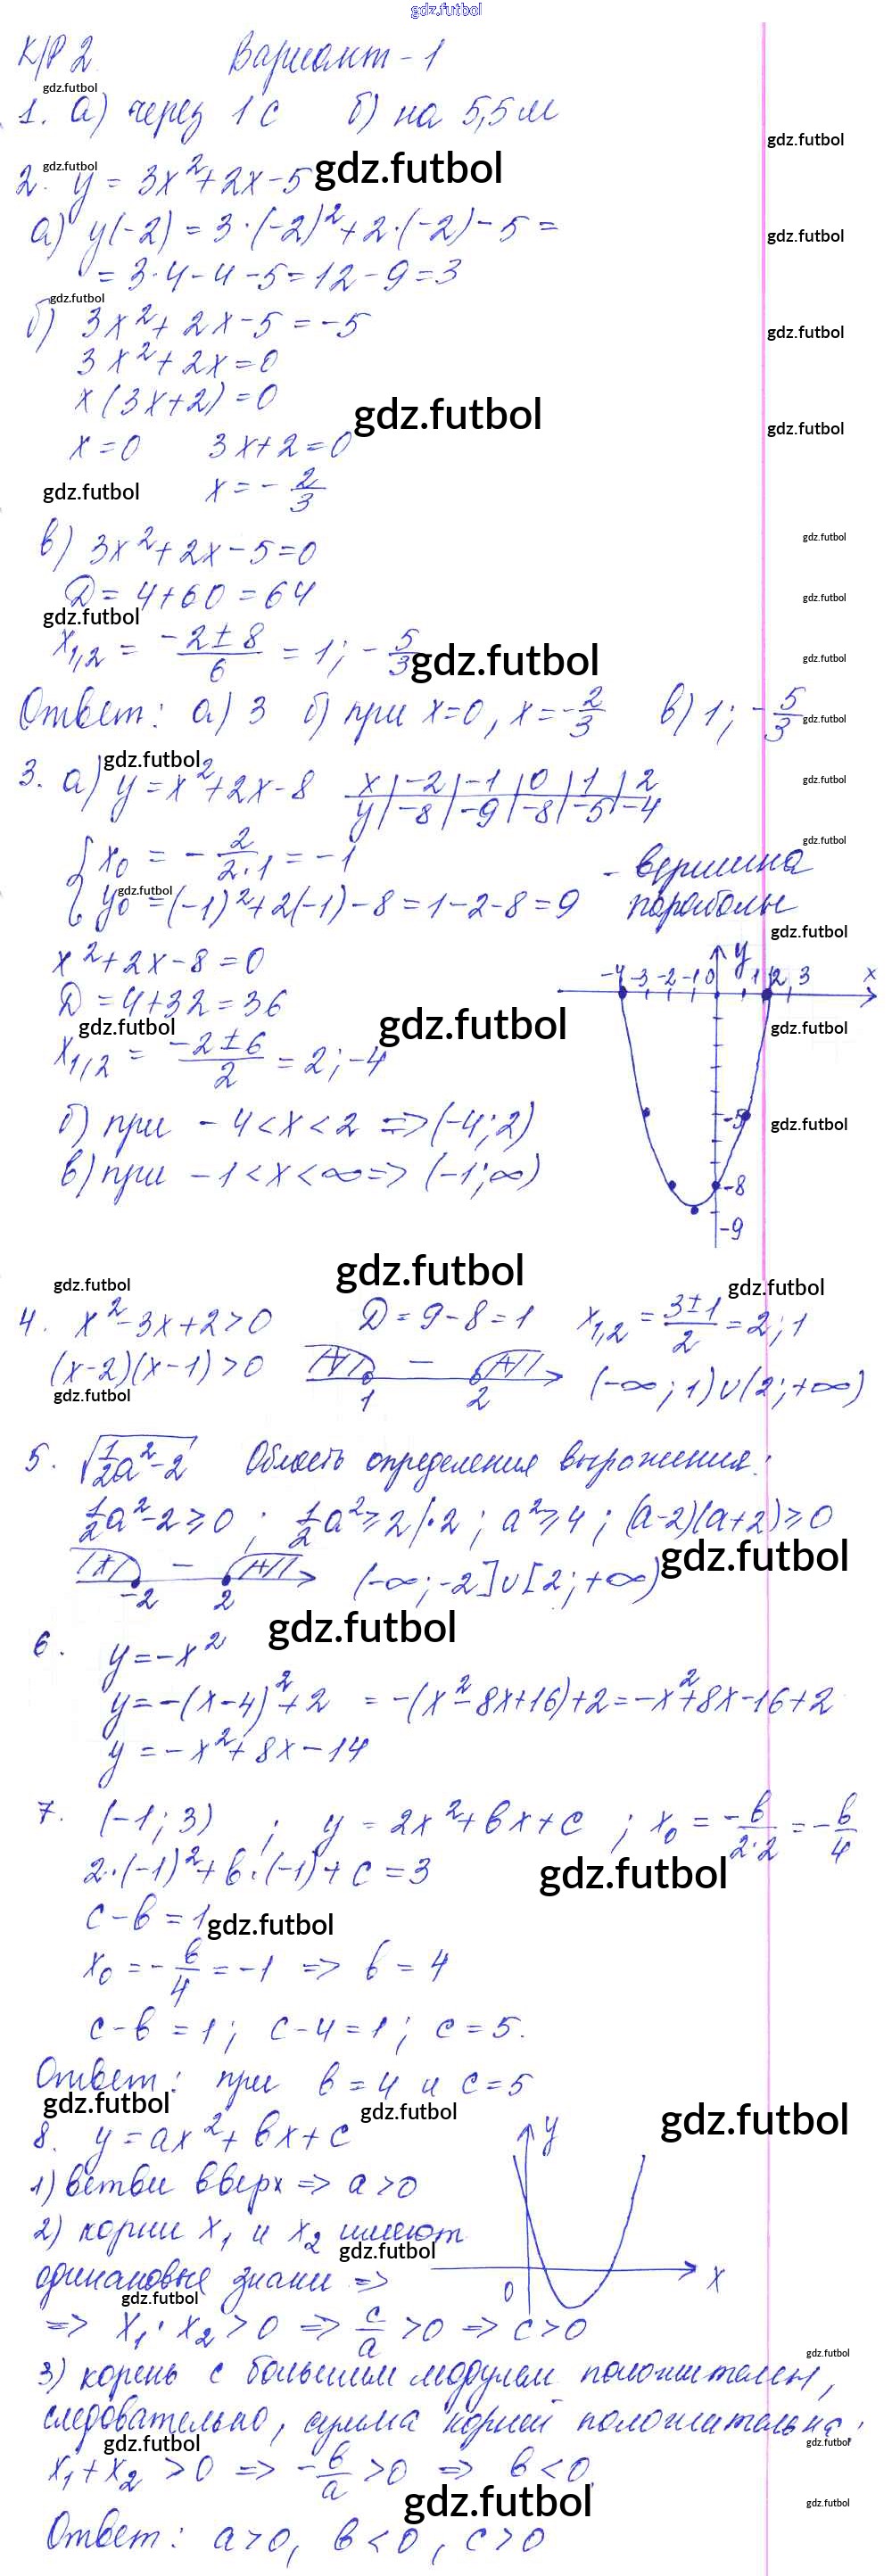 gdz.futbol
К/Р 2. Вариант - 1
gdz.futbol
1. а) через 1 с б) на 5,5 м
gdz.futbol
gdz.futbol
2. y = 3x²+2x-5 gdz.futbol
а) y(-2) = 3·(-2)²+2·(-2)-5 =
gdz.futbol
= 3·4-4-5=12-9=3
gdz.futbol
б) 3x²+2x-5=-5
gdz.futbol
3x²+2x=0
x(3x+2)=0
gdz.futbol
gdz.futbol
x=0 3x+2=0
gdz.futbol x = -2/3
в) 3x²+2x-5=0
gdz.futbol
Д = 4+60=64
gdz.futbol
gdz.futbol
x1,2 = (-2±8)/6 = 1; -5/3 gdz.futbol
gdz.futbol
Ответ: а) 3 б) при x=0, x=-2/3 в) 1; -5/3
gdz.futbol
gdz.futbol
3. а) y=x²+2x-8 x | -2 | -1 | 0 | 1 | 2
gdz.futbol
y | -8 | -9 | -8 | -5 | -4
gdz.futbol
{ x0 = -2/(2·1) = -1 - вершина
gdz.futbol
y0 = (-1)²+2(-1)-8=1-2-8=9 параболы
gdz.futbol
x²+2x-8=0
y
-4 -3 -2 -1 0 1 2 3 x
Д = 4+32=36
gdz.futbol gdz.futbol gdz.futbol
x1,2 = (-2±6)/2 = 2; -4
б) при -4<x<2 => (-4;2)
-5 gdz.futbol
в) при -1<x<∞ => (-1;∞)
-8
-9
gdz.futbol
gdz.futbol gdz.futbol
4. x²-3x+2>0 Д=9-8=1 x1,2 = (3±1)/2 = 2; 1
(x-2)(x-1)>0 + - + (-∞;1)∪(2;+∞)
gdz.futbol 1 2
5. √(1/2a²-2) Область определения выражения:
1/2a²-2≥0; 1/2a²≥2|·2; a²≥4; (a-2)(a+2)≥0
gdz.futbol
+ - + (-∞;-2]∪[2;+∞)
-2 2
gdz.futbol
6. y=-x²
y=-(x-4)²+2 = -(x²-8x+16)+2=-x²+8x-16+2
y=-x²+8x-14
7. (-1;3); y=2x²+bx+c; x0 = -b/(2·2) = -b/4
2·(-1)²+b·(-1)+c=3 gdz.futbol
c-b=1 gdz.futbol
x0 = -b/4 = -1 => b=4
c-b=1; c-4=1; c=5.
Ответ: при b=4 и c=5
gdz.futbol gdz.futbol gdz.futbol
8. y=ax²+bx+c
y
1) ветви вверх => a>0
2) корни x1 и x2 имеют
gdz.futbol
одинановые знаки =>
0 x
gdz.futbol
=> x1·x2>0 => c/a>0 => c>0
gdz.futbol
3) корень с большим модулем положителен,
следовательно, сумма корней положительна:
gdz.futbol gdz.futbol
x1+x2>0 => -b/a>0 => b<0.
gdz.futbol gdz.futbol
Ответ: a>0, b<0, c>0